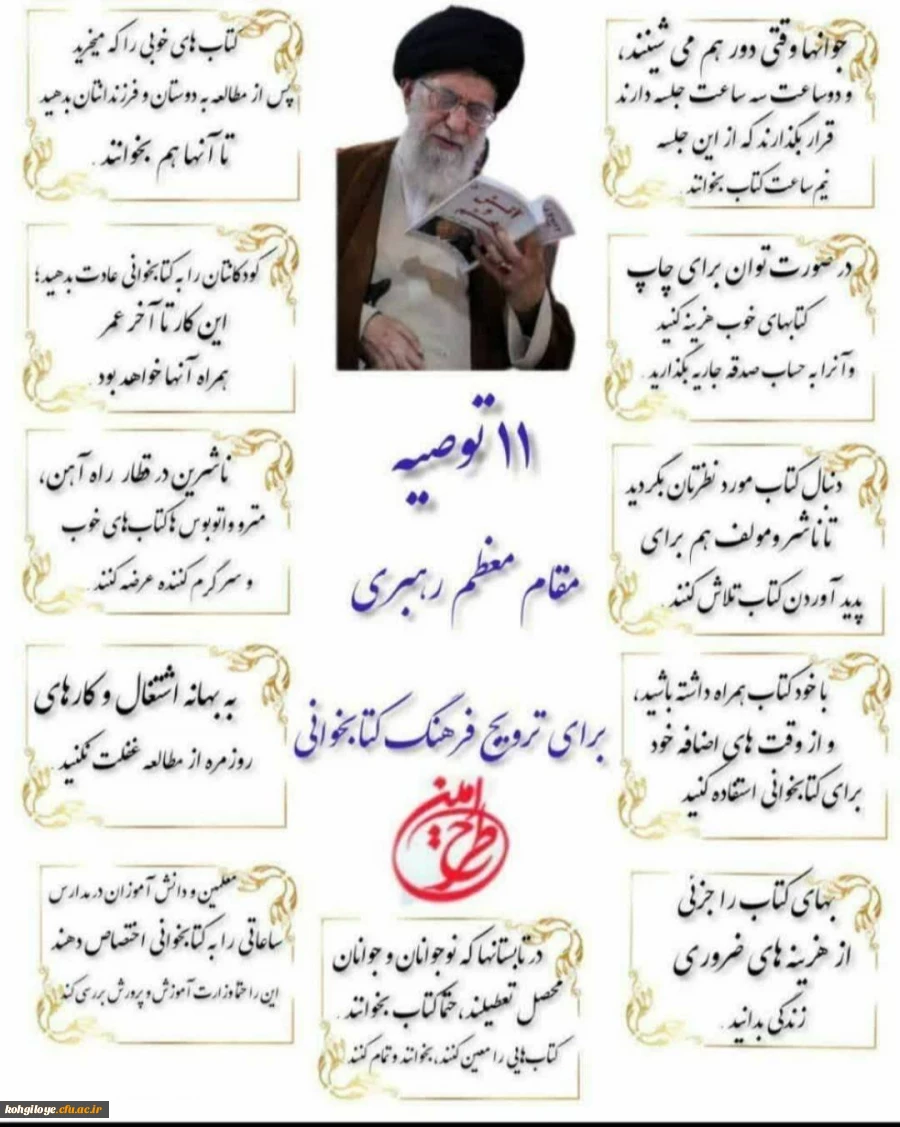 ۱۱ توصیه
مقام معظم رهبری
برای ترویج فرهنگ کتابخوانی
طرح امین
جوانها وقتی دور هم می شینند،
و دو ساعت سه ساعت جلسه دارند
قرار بگذارند که از این جلسه
نیم ساعت کتاب بخوانند.
در صورت توان برای چاپ
کتابهای خوب هزینه کنید
و آنرا به حساب صدقه جاریه بگذارید.
دنبال کتاب مورد نظرتان بگردید
تا ناشر و مولف هم برای
پدید آوردن کتاب تلاش کنند.
با خود کتاب همراه داشته باشید،
و از وقت های اضافه خود
برای کتابخوانی استفاده کنید
بهای کتاب را جزئی
از هزینه های ضروری
زندگی بدانید.
کتاب های خوبی را که میخرید
پس از مطالعه به دوستان و فرزندانتان بدهید
تا آنها هم بخوانند.
کودکانتان را به کتابخوانی عادت بدهید؛
این کار تا آخر عمر
همراه آنها خواهد بود.
ناشرین در قطار راه آهن،
مترو و اتوبوس ها کتاب های خوب
و سرگرم کننده عرضه کنند.
به بهانه اشتغال و کارهای
روزمره از مطالعه غفلت نکنید.
معلمین و دانش آموزان در مدارس
ساعاتی را به کتابخوانی اختصاص دهند
این را حتما وزارت آموزش و پرورش بررسی کند
در تابستانها که نوجوانان و جوانان
محصل تعطیلند، حتما کتاب بخوانند.
کتاب هایی را معین کنند، بخوانند و تمام کنند
kohgiloye.cfu.ac.ir